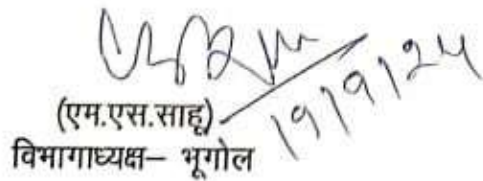 19/9/24
(एम.एस.साहू)
विभागाध्यक्ष– भूगोल